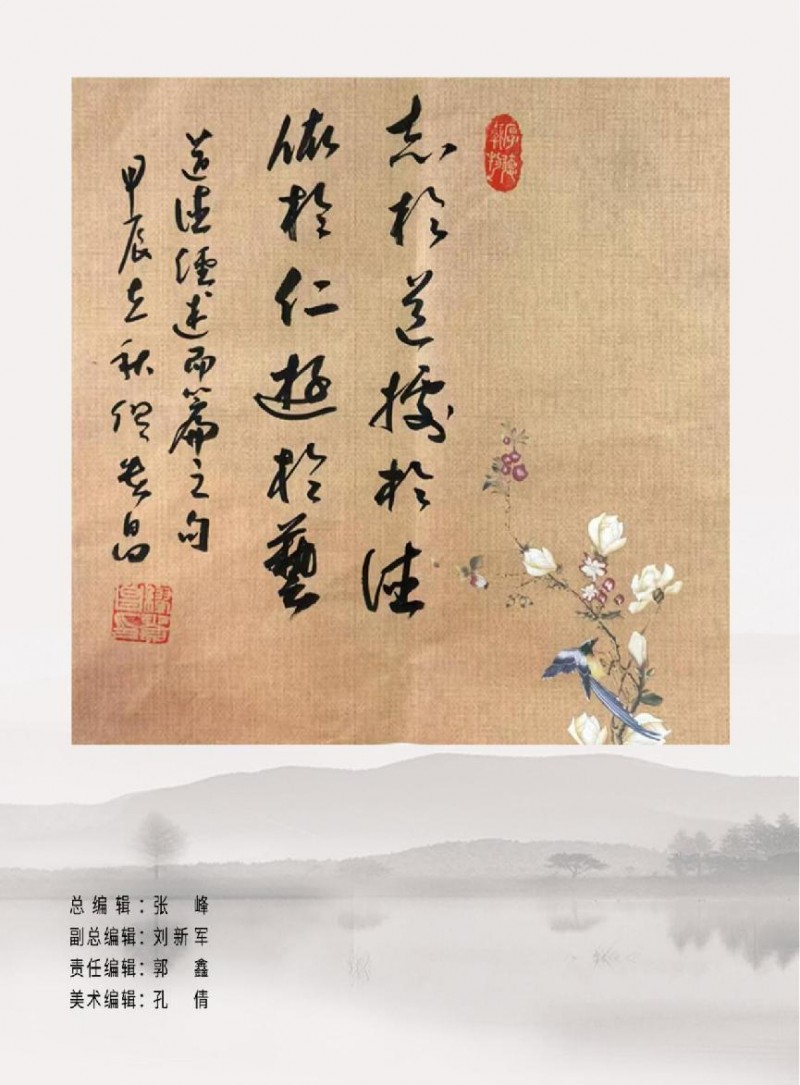 厚德載物
志於道據於德
依於仁遊於藝
道德經述而篇之句
甲辰立秋 昌
总编辑：张 峰
副总编辑：刘新军
责任编辑：郭 鑫
美术编辑：孔 倩